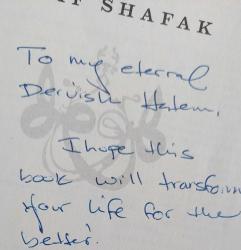 IF SHAFAK
To my eternal
Dervish Hatem,
I hope this
book will transform
your life for the
better!